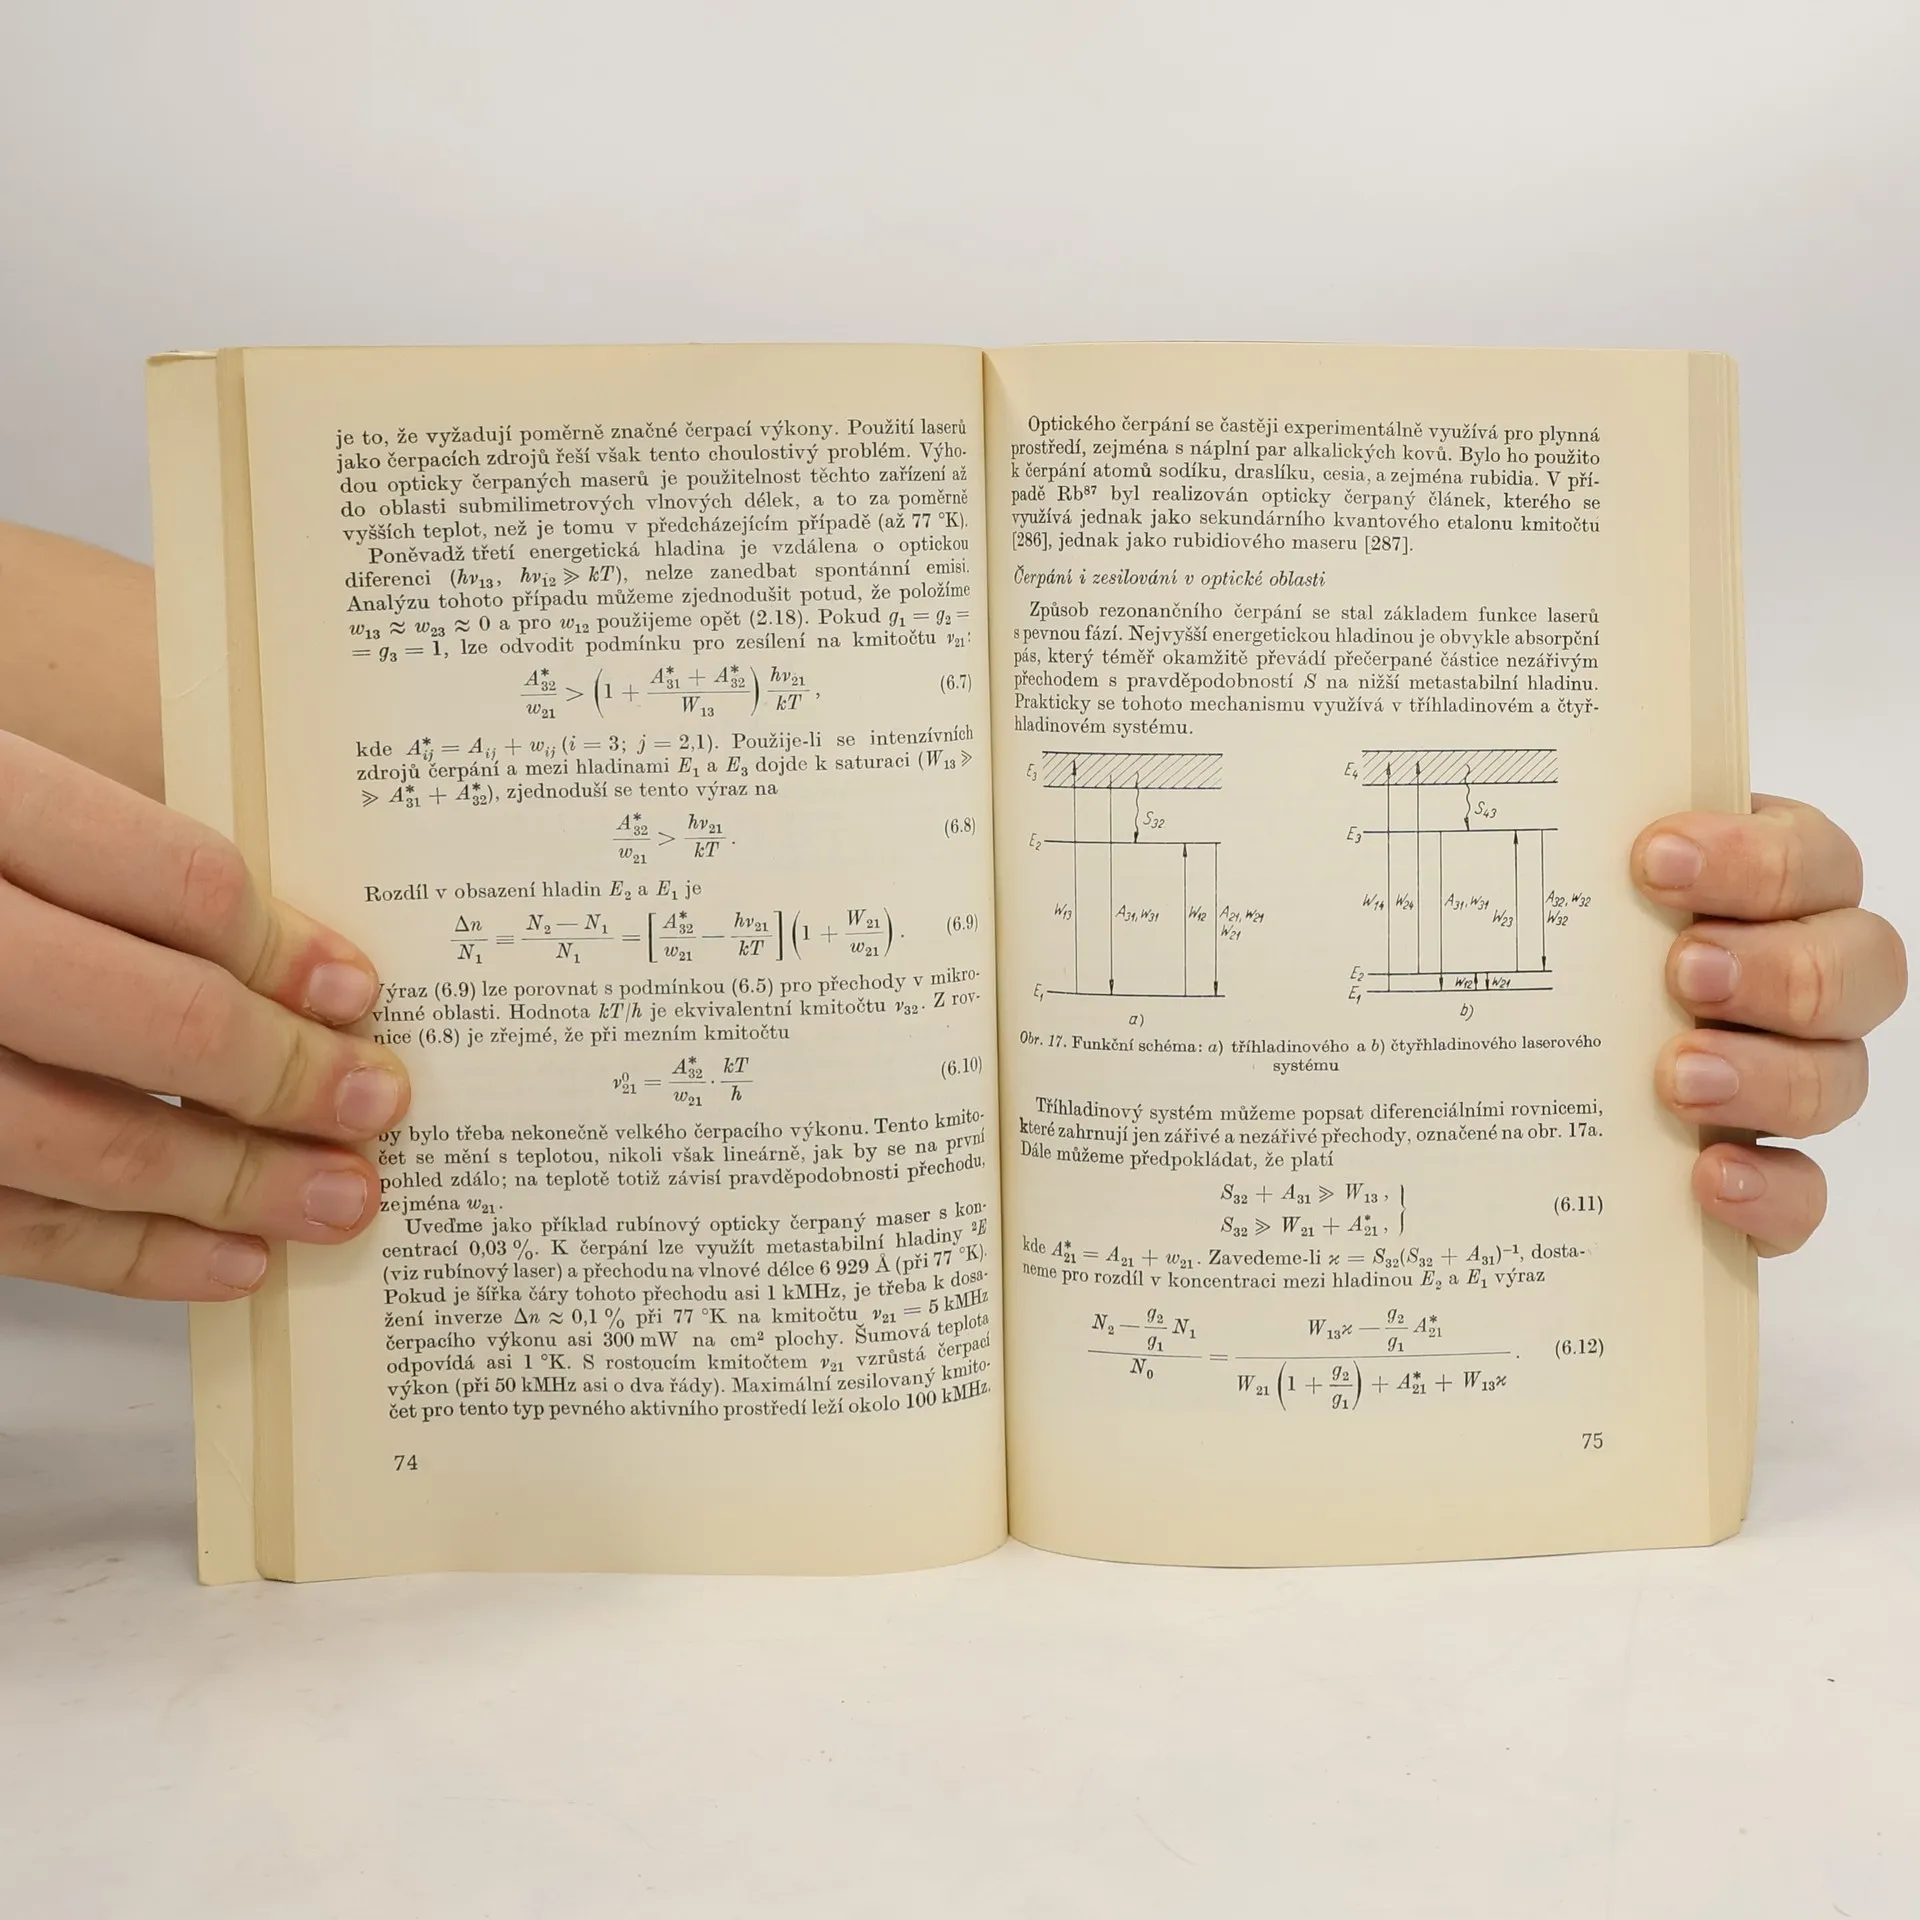 je to, že vyžadují poměrně značné čerpací výkony. Použití laserů
jako čerpacích zdrojů řeší však tento choulostivý problém. Výho-
dou opticky čerpaných maserů je použitelnost těchto zařízení až
do oblasti submilimetrových vlnových délek, a to za poměrně
vyšších teplot, než je tomu v předcházejícím případě (až 77 °K).
Poněvadž třetí energetická hladina je vzdálena o optickou
diferenci (hν₁₃, hν₁₂ ≫ kT), nelze zanedbat spontánní emisi.
Analýzu tohoto případu můžeme zjednodušit potud, že položíme
w₁₃ ≈ w₂₃ ≈ 0 a pro w₁₂ použijeme opět (2.18). Pokud g₁ = g₂ =
= g₃ = 1, lze odvodit podmínku pro zesílení na kmitočtu ν₂₁:
A*₃₂/w₂₁ > (1 + (A*₃₁ + A*₃₂)/W₁₃) hν₂₁/kT , (6.7)
kde A*ᵢⱼ = Aᵢⱼ + wᵢⱼ (i = 3; j = 2,1). Použije-li se intenzívních
zdrojů čerpání a mezi hladinami E₁ a E₃ dojde k saturaci (W₁₃ ≫
≫ A*₃₁ + A*₃₂), zjednoduší se tento výraz na
A*₃₂/w₂₁ > hν₂₁/kT . (6.8)
Rozdíl v obsazení hladin E₂ a E₁ je
Δn/N₁ ≡ (N₂ — N₁)/N₁ = [A*₃₂/w₂₁ — hν₂₁/kT] (1 + W₂₁/w₂₁) . (6.9)
Výraz (6.9) lze porovnat s podmínkou (6.5) pro přechody v mikro-
vlnné oblasti. Hodnota kT/h je ekvivalentní kmitočtu ν₃₂. Z rov-
nice (6.8) je zřejmé, že při mezním kmitočtu
ν⁰₂₁ = A*₃₂/w₂₁ · kT/h (6.10)
by bylo třeba nekonečně velkého čerpacího výkonu. Tento kmito-
čet se mění s teplotou, nikoli však lineárně, jak by se na první
pohled zdálo; na teplotě totiž závisí pravděpodobnosti přechodu,
zejména w₂₁.
Uveďme jako příklad rubínový opticky čerpaný maser s kon-
centrací 0,03 %. K čerpání lze využít metastabilní hladiny ²E
(viz rubínový laser) a přechodu na vlnové délce 6 929 Å (při 77 °K).
Pokud je šířka čáry tohoto přechodu asi 1 kMHz, je třeba k dosa-
žení inverze Δn ≈ 0,1 % při 77 °K na kmitočtu ν₂₁ = 5 kMHz
čerpacího výkonu asi 300 mW na cm² plochy. Šumová teplota
odpovídá asi 1 °K. S rostoucím kmitočtem ν₂₁ vzrůstá čerpací
výkon (při 50 kMHz asi o dva řády). Maximální zesilovaný kmito-
čet pro tento typ pevného aktivního prostředí leží okolo 100 kMHz.
74
Optického čerpání se častěji experimentálně využívá pro plynná
prostředí, zejména s náplní par alkalických kovů. Bylo ho použito
k čerpání atomů sodíku, draslíku, cesia, a zejména rubidia. V pří-
padě Rb⁸⁷ byl realizován opticky čerpaný článek, kterého se
využívá jednak jako sekundárního kvantového etalonu kmitočtu
[286], jednak jako rubidiového maseru [287].
Čerpání i zesilování v optické oblasti
Způsob rezonančního čerpání se stal základem funkce laserů
s pevnou fází. Nejvyšší energetickou hladinou je obvykle absorpční
pás, který téměř okamžitě převádí přečerpané částice nezářivým
přechodem s pravděpodobností S na nižší metastabilní hladinu.
Prakticky se tohoto mechanismu využívá v tříhladinovém a čtyř-
hladinovém systému.
E₃
S₃₂
E₂
W₁₃ A₃₁, w₃₁ W₁₂ A₂₁, w₂₁
W₂₁
E₁
a)
E₄
S₄₃
E₃
W₁₄ W₂₄ A₃₁, w₃₁ W₂₃ A₃₂, w₃₂
W₃₂
E₂
w₁₂ w₂₁
E₁
b)
Obr. 17. Funkční schéma: a) tříhladinového a b) čtyřhladinového laserového
systému
Tříhladinový systém můžeme popsat diferenciálními rovnicemi,
které zahrnují jen zářivé a nezářivé přechody, označené na obr. 17a.
Dále můžeme předpokládat, že platí
S₃₂ + A₃₁ ≫ W₁₃ ,
S₃₂ ≫ W₂₁ + A*₂₁ , } (6.11)
kde A*₂₁ = A₂₁ + w₂₁. Zavedeme-li ϰ = S₃₂(S₃₂ + A₃₁)⁻¹, dosta-
neme pro rozdíl v koncentraci mezi hladinou E₂ a E₁ výraz
(N₂ — g₂/g₁ N₁)/N₀ = (W₁₃ϰ — g₂/g₁ A*₂₁)/(W₂₁ (1 + g₂/g₁) + A*₂₁ + W₁₃ϰ) . (6.12)
75